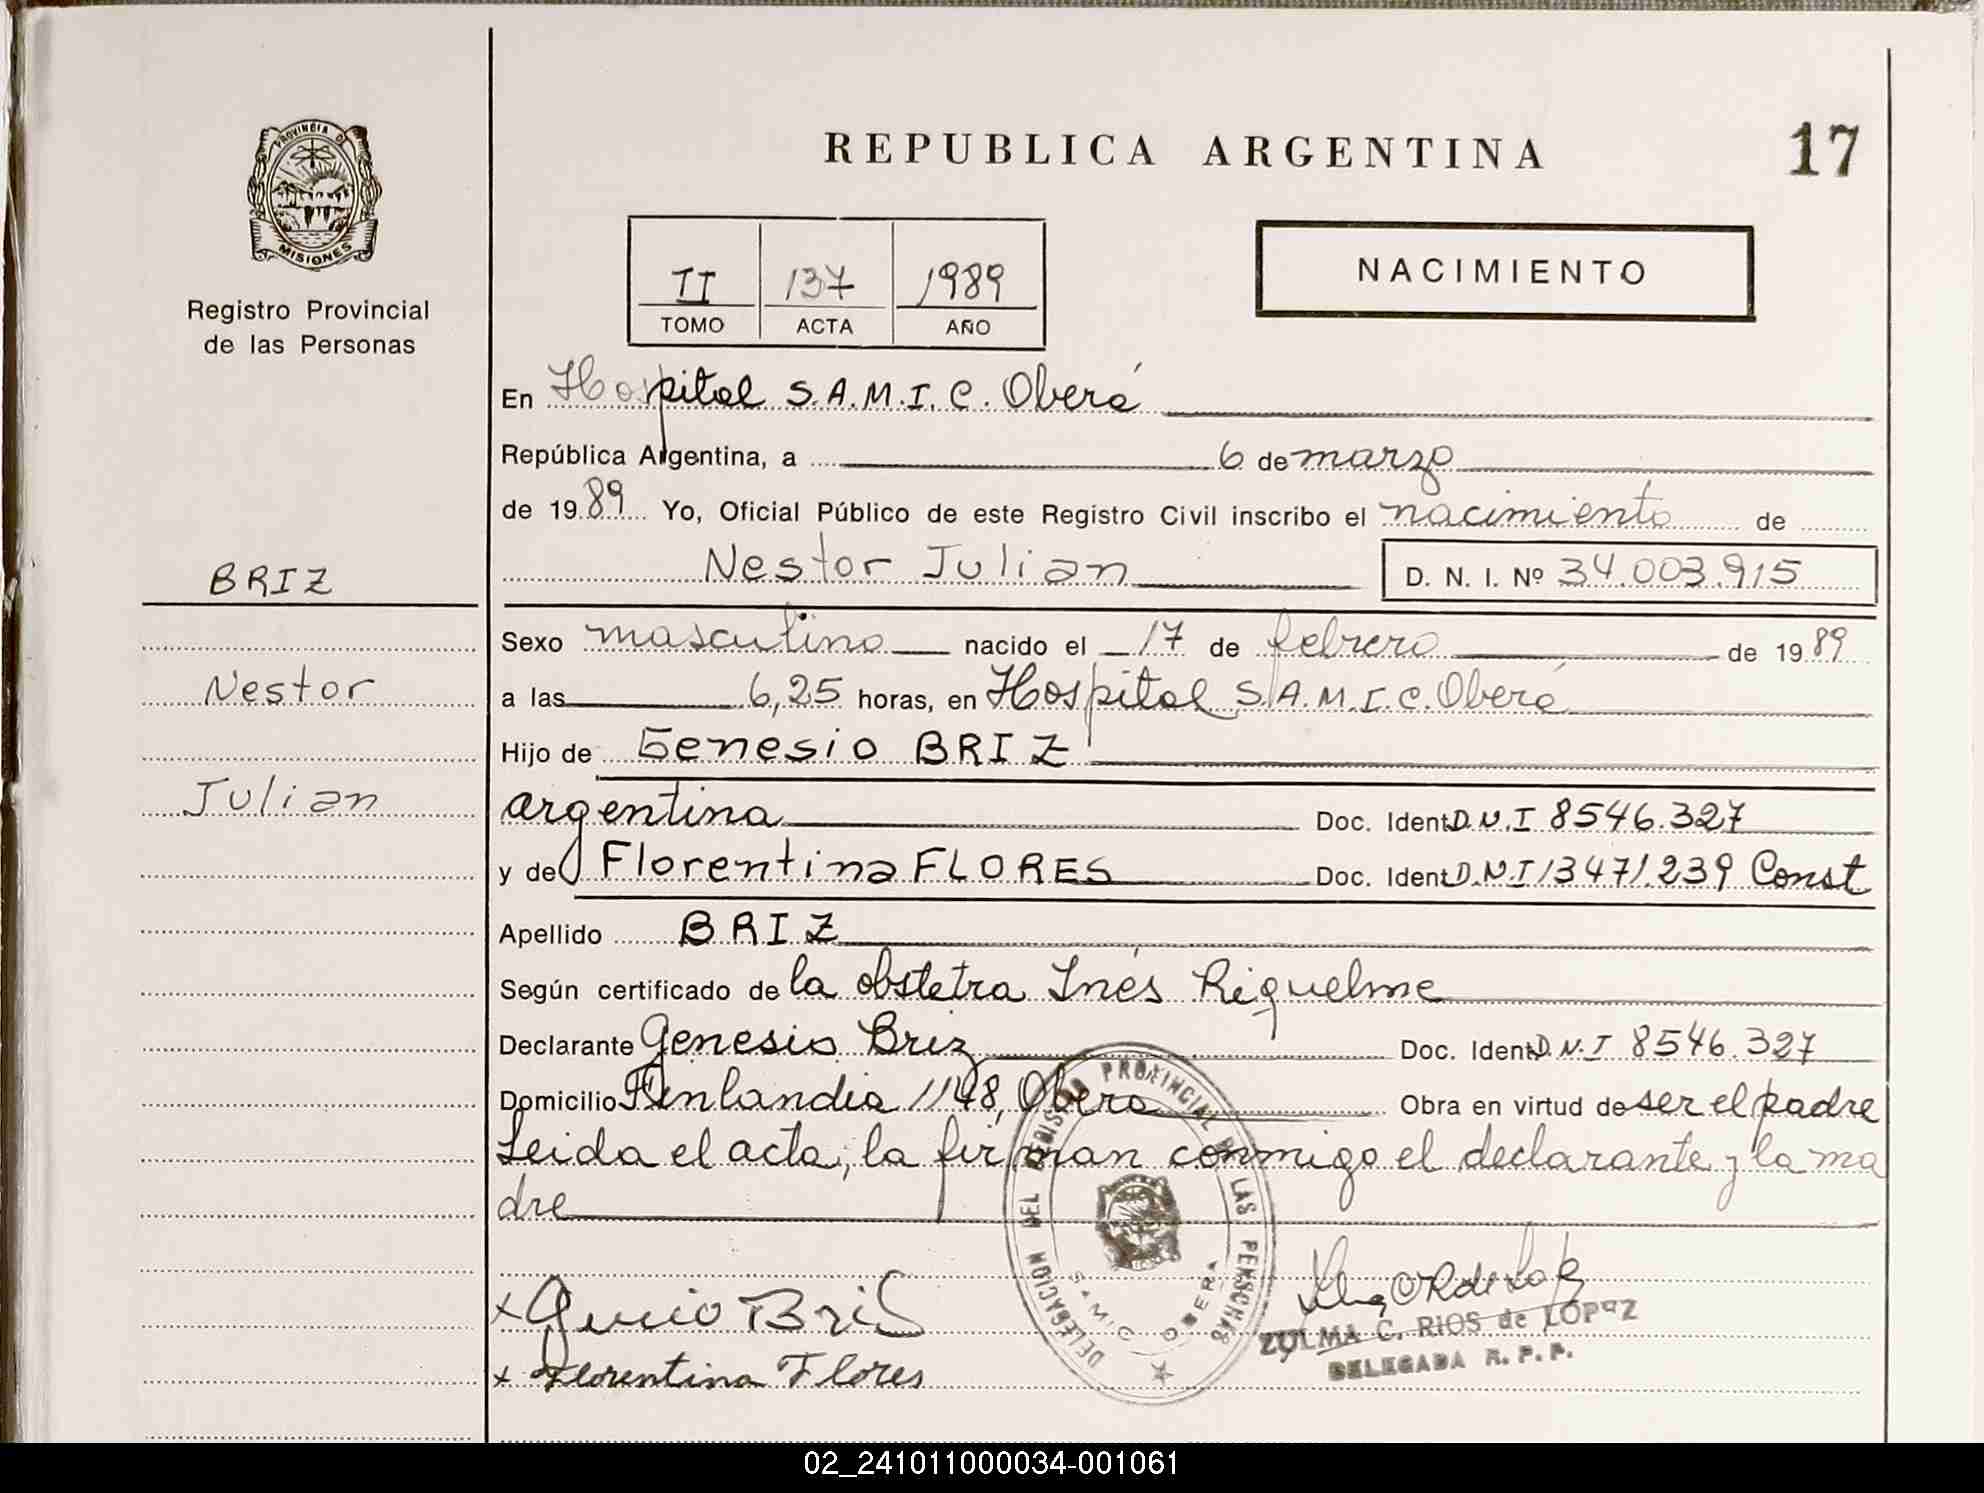 PROVINCIA DE
MISIONES
Registro Provincial
de las Personas
BRIZ
Nestor
Julian
REPUBLICA ARGENTINA
17
II 137 1989
TOMO ACTA AÑO
NACIMIENTO
En Hospital S.A.M.I.C. Oberá
República Argentina, a 6 de marzo
de 1989 Yo, Oficial Público de este Registro Civil inscribo el nacimiento de
Nestor Julian D. N. I. Nº 34.003.915
Sexo masculino nacido el 17 de febrero de 1989
a las 6,25 horas, en Hospital S.A.M.I.C. Oberá
Hijo de Genesio BRIZ
argentina Doc. Ident D.N.I 8546.327
y de Florentina FLORES Doc. Ident D.N.I 13471.239 Const
Apellido BRIZ
Según certificado de la obstetra Inés Riquelme
Declarante Genesio Briz Doc. Ident D.N.I 8546.327
Domicilio Finlandia 1148, Obera Obra en virtud de ser el padre
Leida el acta, la firman conmigo el declarante y la ma
dre
DELEGACION DEL REGISTRO PROVINCIAL DE LAS PERSONAS
SAMIC OBERA
x Florentina Flores
ZULMA C. RIOS de LOPEZ
DELEGADA R. P. P.
02_241011000034-001061